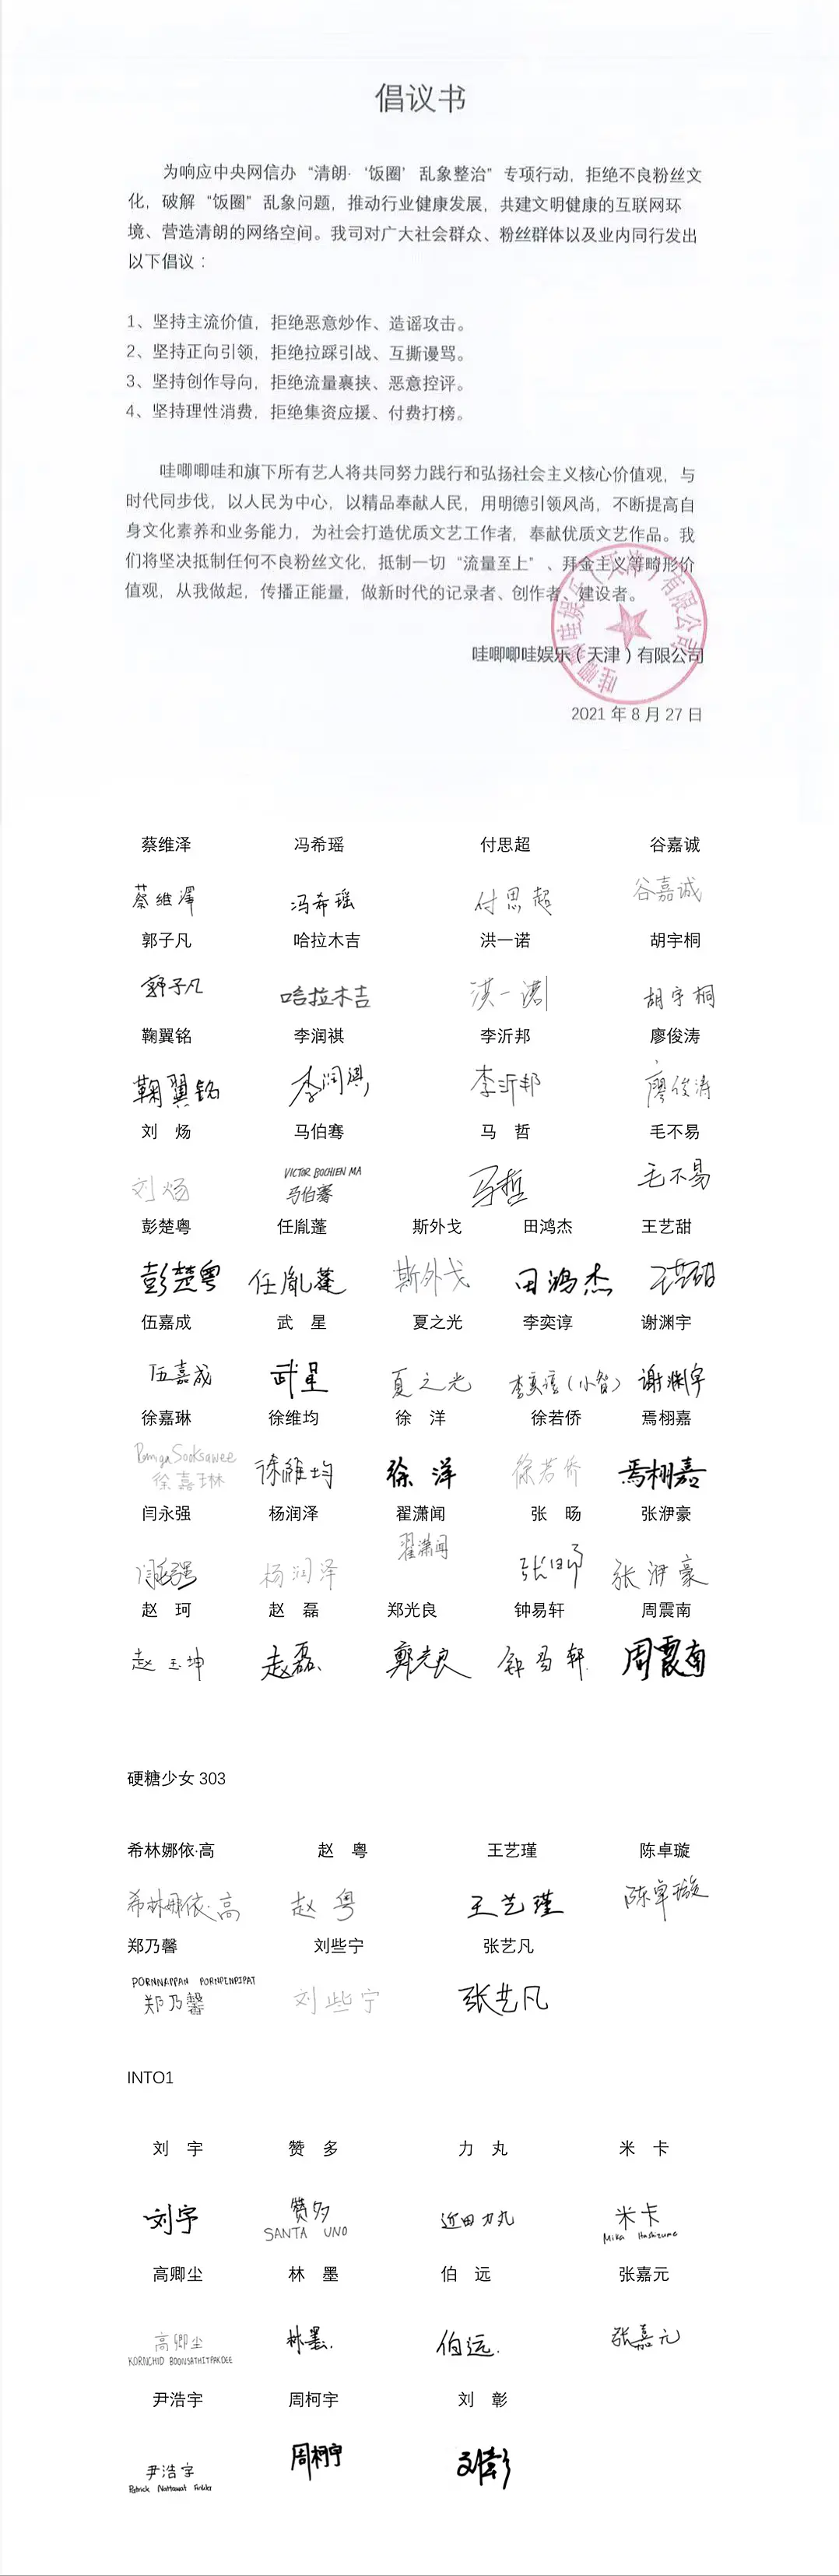 倡议书
为响应中央网信办“清朗·‘饭圈’乱象整治”专项行动，拒绝不良粉丝文
化，破解“饭圈”乱象问题，推动行业健康发展，共建文明健康的互联网环
境、营造清朗的网络空间。我司对广大社会群众、粉丝群体以及业内同行发出
以下倡议：
1、坚持主流价值，拒绝恶意炒作、造谣攻击。
2、坚持正向引领，拒绝拉踩引战、互撕谩骂。
3、坚持创作导向，拒绝流量裹挟、恶意控评。
4、坚持理性消费，拒绝集资应援、付费打榜。
哇唧唧哇和旗下所有艺人将共同努力践行和弘扬社会主义核心价值观，与
时代同步伐，以人民为中心，以精品奉献人民，用明德引领风尚，不断提高自
身文化素养和业务能力，为社会打造优质文艺工作者，奉献优质文艺作品。我
们将坚决抵制任何不良粉丝文化，抵制一切“流量至上”、拜金主义等畸形价
值观，从我做起，传播正能量，做新时代的记录者、创作者、建设者。
哇唧唧哇娱乐（天津）有限公司
哇唧唧哇娱乐（天津）有限公司
2021 年 8 月 27 日
蔡维泽 冯希瑶 付思超 谷嘉诚
蔡維澤 冯希瑶 付思超 谷嘉诚
郭子凡 哈拉木吉 洪一诺 胡宇桐
郭子凡 哈拉木吉 洪一诺 胡宇桐
鞠翼铭 李润祺 李沂邦 廖俊涛
鞠翼铭 李润祺 李沂邦 廖俊涛
刘 炀 马伯骞 马 哲 毛不易
刘炀 VICTOR BOCHIEN MA 马伯骞 马哲 毛不易
彭楚粤 任胤蓬 斯外戈 田鸿杰 王艺甜
彭楚粤 任胤蓬 斯外戈 田鸿杰 王艺甜
伍嘉成 武 星 夏之光 李奕谆 谢渊宇
伍嘉成 武星 夏之光 李奕谆（小智） 谢渊宇
徐嘉琳 徐维均 徐 洋 徐若侨 焉栩嘉
徐嘉琳 徐維均 徐洋 徐若侨 焉栩嘉
闫永强 杨润泽 翟潇闻 张 旸 张洢豪
闫永强 杨润泽 翟潇闻 张旸 张洢豪
赵 珂 赵 磊 郑光良 钟易轩 周震南
赵 赵磊 鄭光良 钟易轩 周震南
硬糖少女 303
希林娜依·高 赵 粤 王艺瑾 陈卓璇
希林娜依·高 赵粤 王艺瑾 陈卓璇
郑乃馨 刘些宁 张艺凡
郑乃馨 刘些宁 张艺凡
INTO1
刘 宇 赞 多 力 丸 米 卡
刘宇 赞多 SANTA UNO 近田力丸 米卡 Mika Hashizume
高卿尘 林 墨 伯 远 张嘉元
高卿尘 KORNCHID BOONSATHITPAKDEE 林墨. 伯远. 张嘉元
尹浩宇 周柯宇 刘 彰
尹浩宇 周柯宇 刘彰